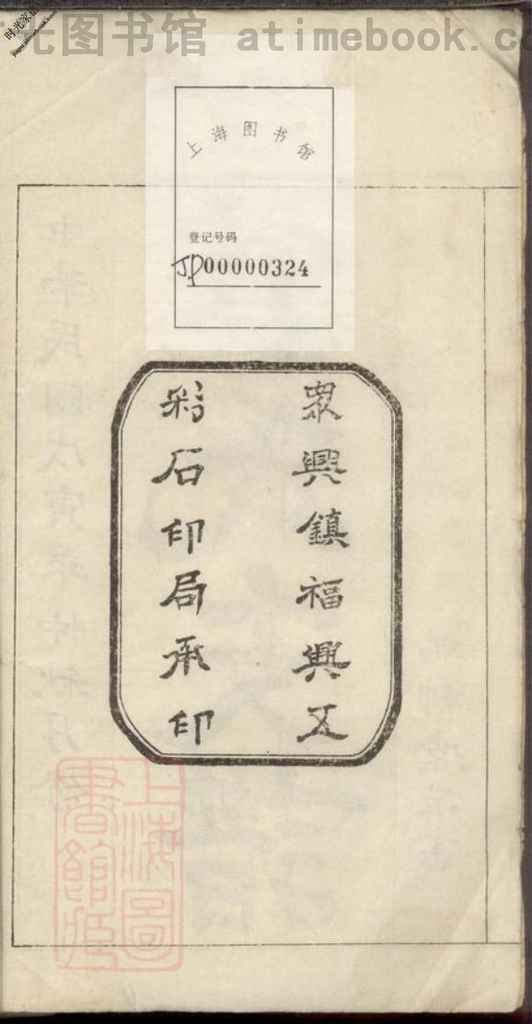 光图书馆 atimebook.c
上海图书馆
登记号码
JP00000324
眾興鎮福興五
彩石印局承印
上海圖
書館藏